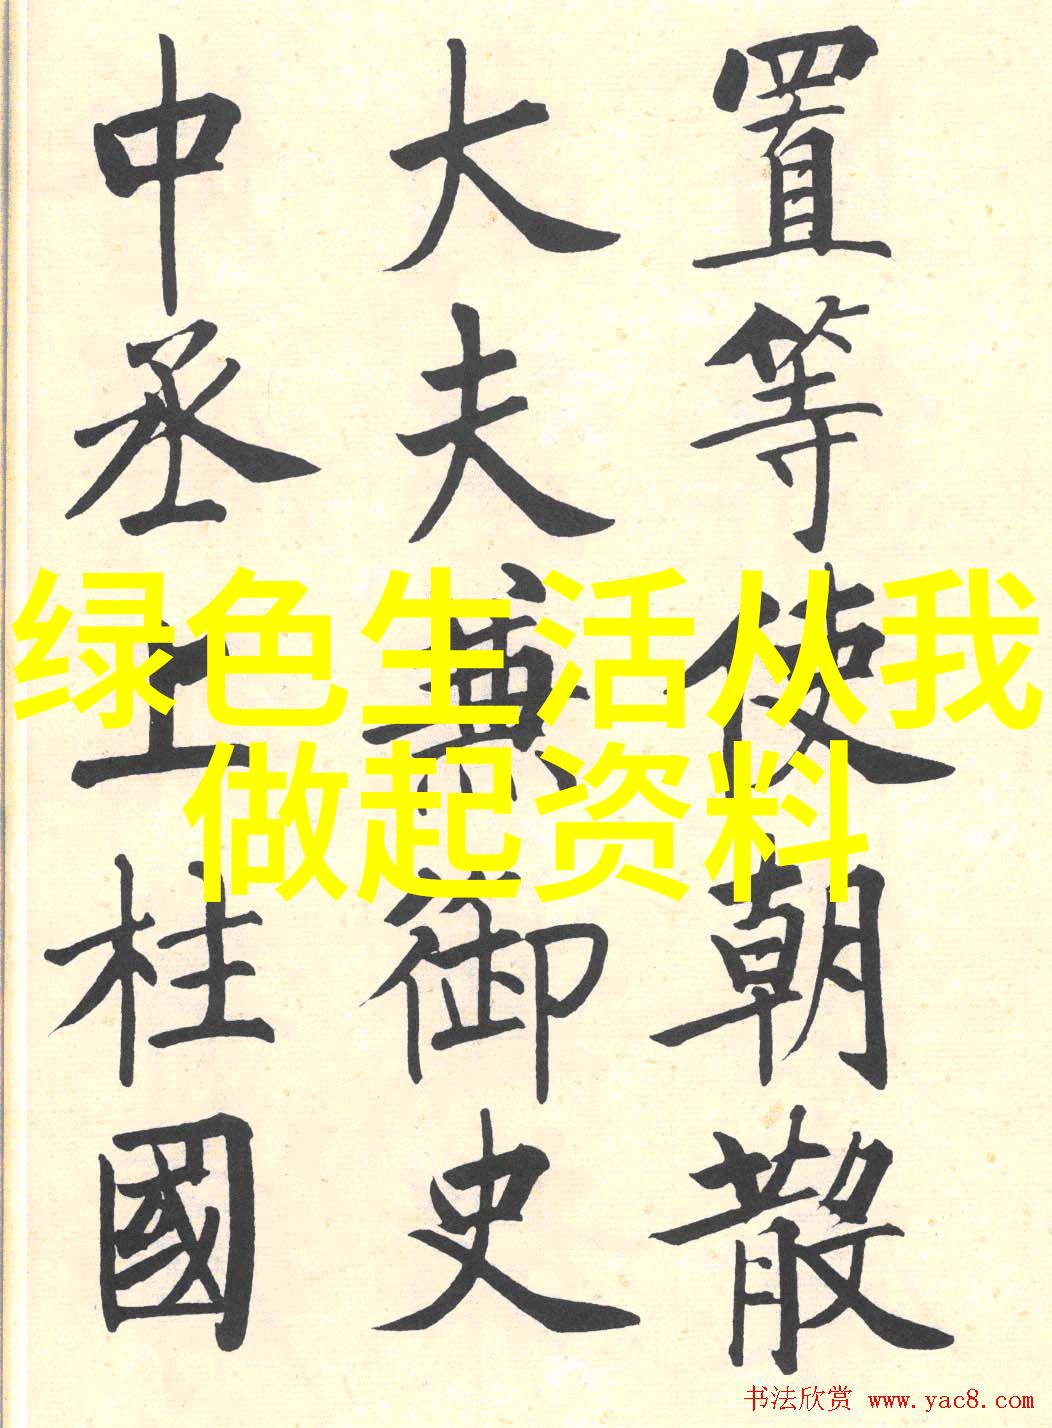 置等使朝散
大夫兼御史
中丞上柱國
绿色生活从我
做起资料
书法欣赏 www.yac8.com